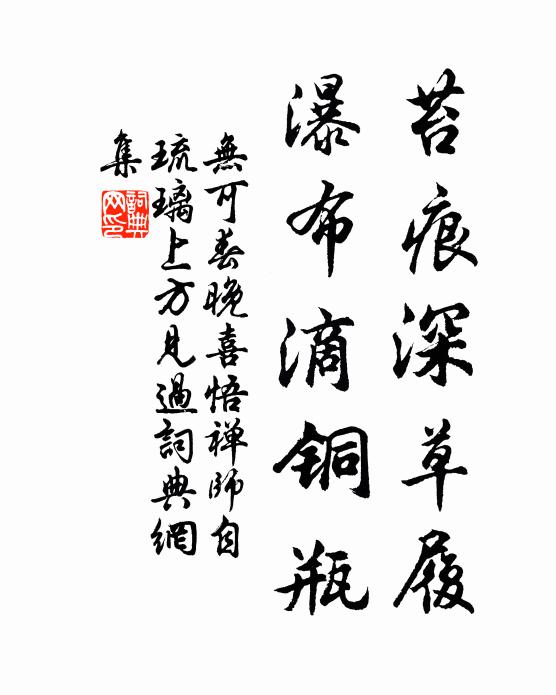 苔痕深草履
瀑布滴铜瓶
無可春晚喜悟禅師自
琉璃上方見過詞典網
集
詞典
网印